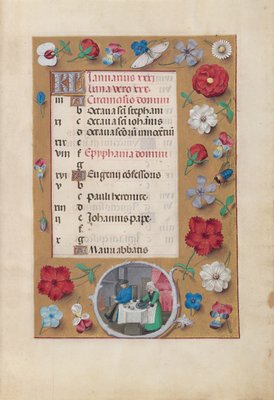 KL Ianuarius xxxi
Luna vero xxx
A Circumcisio domini
iii b Octava sci stephani
c Octava sci iohannis
xi d Octava scorum innocentum
xix e
viii f Epyphania domini
g
xvi A Eugenii cofessoris
v b
c Pauli heremite
d
ii e Iohannis pape
f
x g
A Mauri abbatis